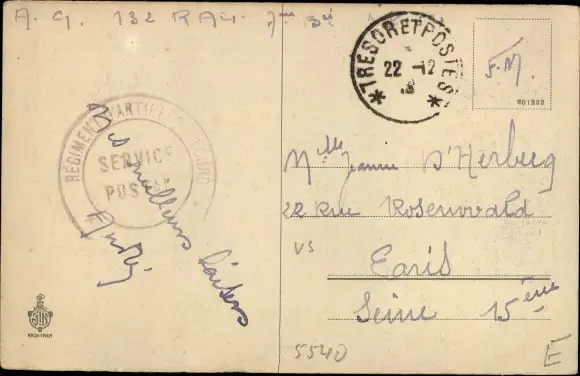 A. G. 132 R A L 7me Bie
*TRESOR ET POSTES*
22 -12
F.M.
201232
RÉGIMENT D'ARTILLERIE LOURD
SERVICE
POSTAL
Mes meilleurs baisers
André
Mlle Jeanne D'Herbecq
22 Rue Rosenwald
VS
Paris
Seine 15ème
5540
E